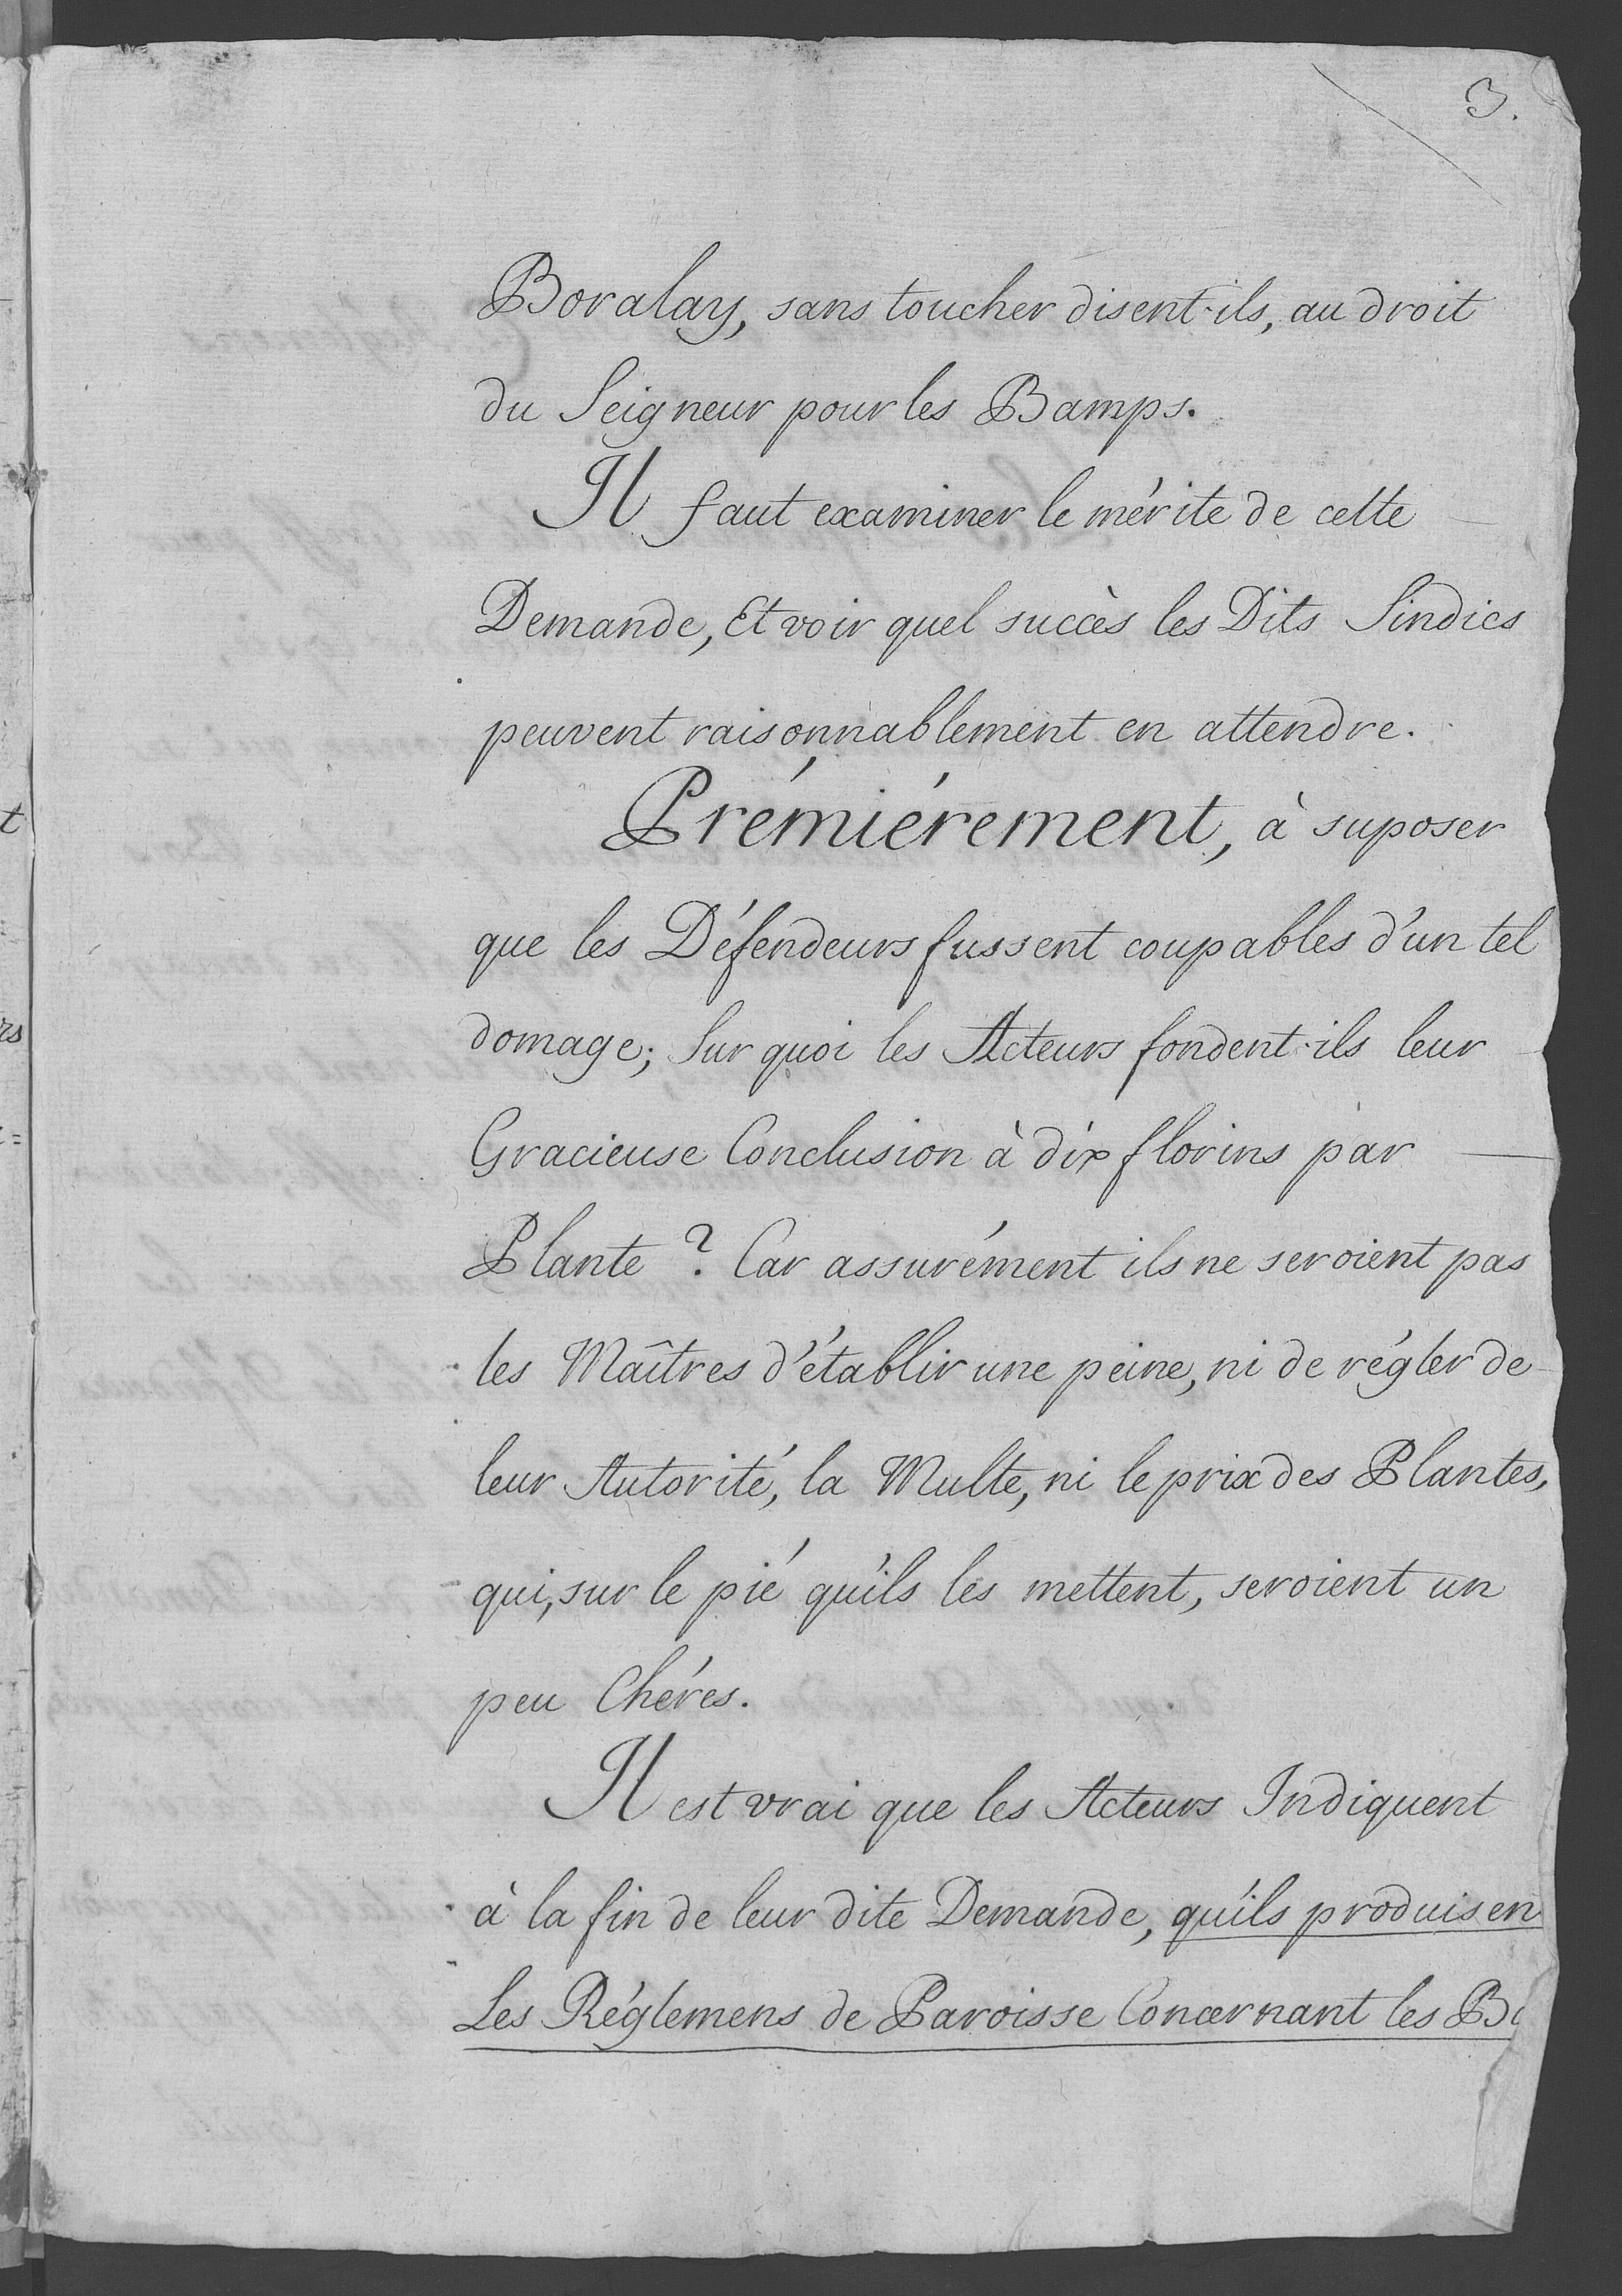 3.
Boralay, sans toucher disent-ils, au droit
du Seigneur pour les Bamps.
Il faut examiner le mérite de cette
Demande, Et voir quel succès les Dits Sindics
peuvent raisonnablement en attendre.
Prémiérement, à suposer
que les Défendeurs fussent coupables d'un tel
domage; Sur quoi les Acteurs fondent-ils leur
Gracieuse Conclusion à dix florins par
Plante? Car assurément ils ne seroient pas
les Maîtres d'établir une peine, ni de régler de
leur Autorité, la Multe, ni le prix des Plantes,
qui, sur le pié qu'ils les mettent, seroient un
peu Chéres.
Il est vrai que les Acteurs Indiquent
à la fin de leur dite Demande, qu'ils produisen
Les Réglemens de Paroisse Concernant les B